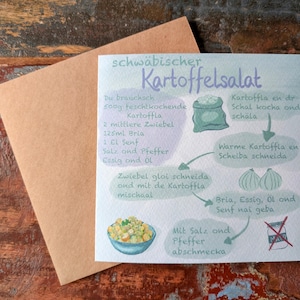 schwäbischer
Kartoffelsalat
Du brauchsch
500g festkochende
Kartoffla
2 mittlere Zwiebel
125ml Bria
1 Ql Senf
Salz ond Pfeffer
Essig ond Öl
Kartoffla en dr
Schal kocha ond
schäla
Warme Kartoffla en
Scheiba schneida
Zwiebel gloi schneida
ond mit de Kartoffla
mischaa
Bria, Essig, Öl ond
Senf nai geba
Mit Salz ond
Pfeffer
abschmecka